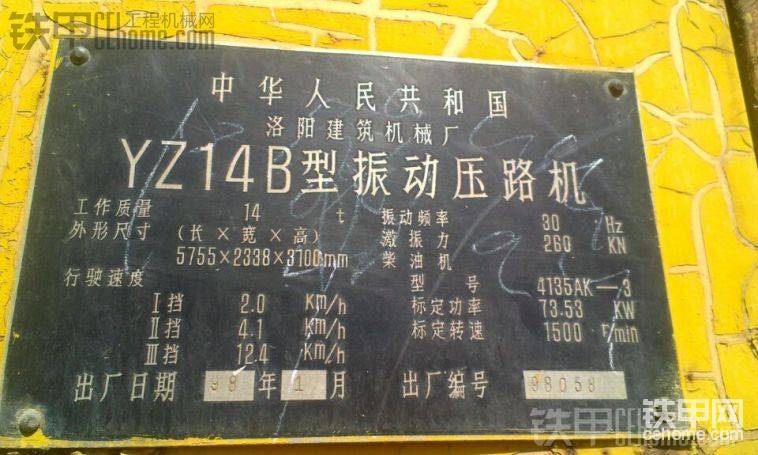 铁甲工程机械网
cehome.com
中华人民共和国
洛阳建筑机械厂
YZ14B型振动压路机
工作质量 14 t
外形尺寸 (长×宽×高)
5755×2338×3100mm
行驶速度
Ⅰ挡 2.0 Km/h
Ⅱ挡 4.1 Km/h
Ⅲ挡 12.4 Km/h
振动频率 30 Hz
激振力 260 KN
柴油机
型号 4135AK—3
标定功率 73.53 KW
标定转速 1500 r/min
出厂日期 98 年 1 月
出厂编号 98058
铁甲网
cehome.com